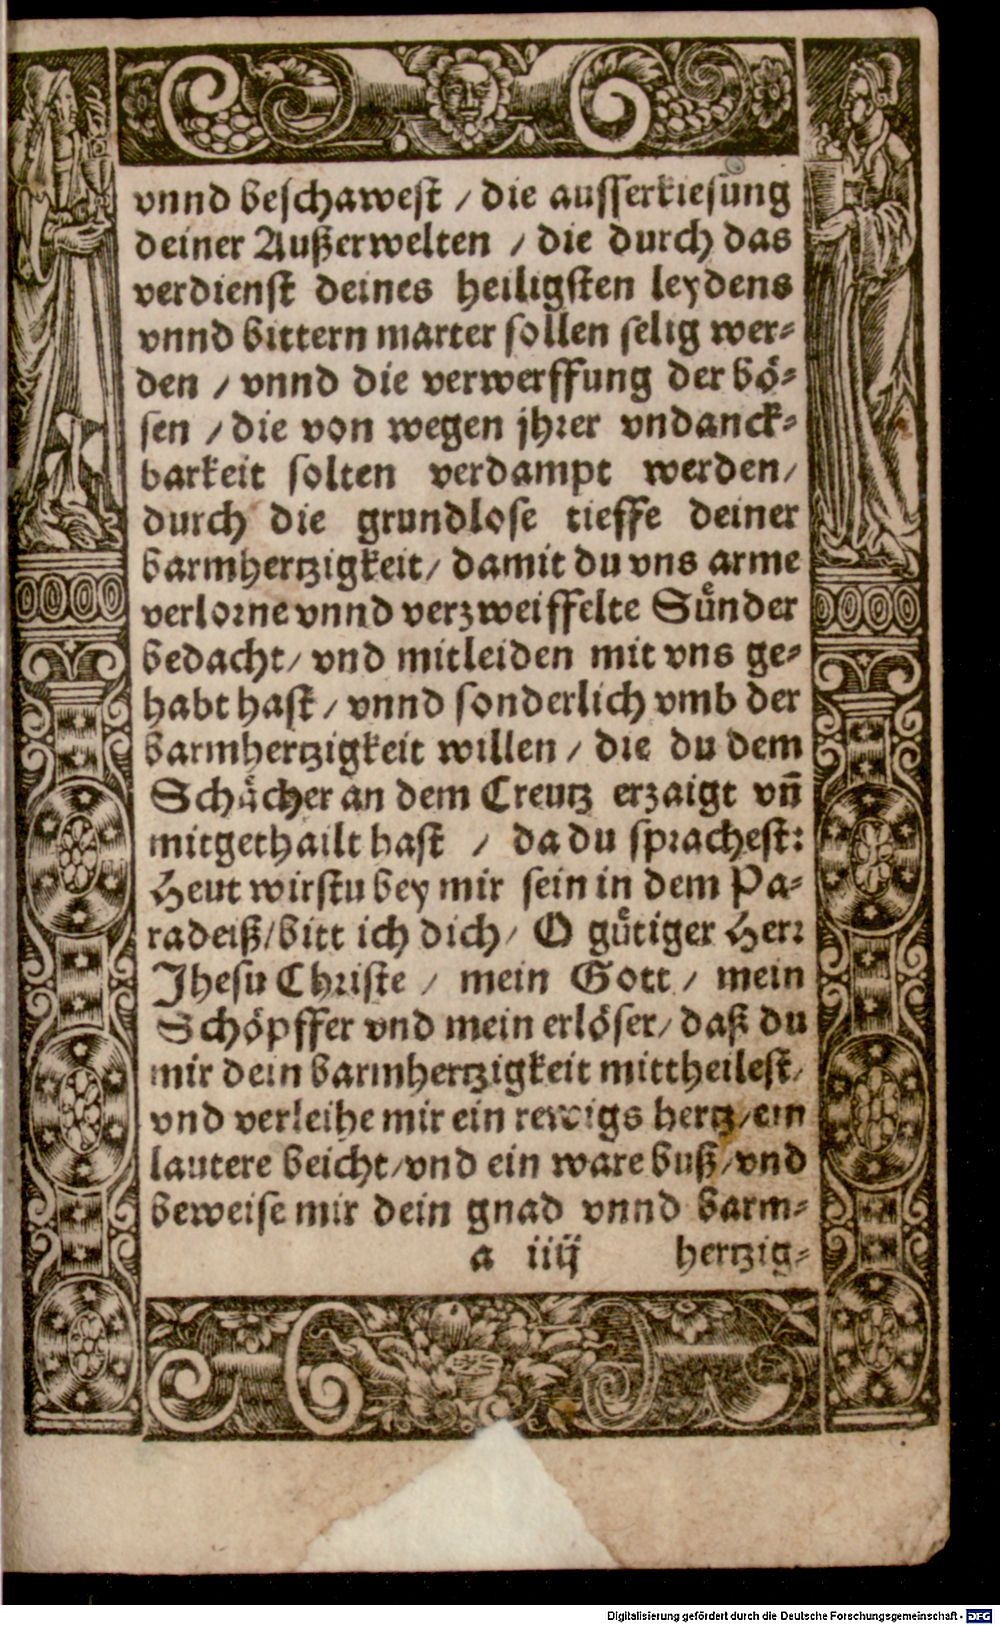 vnnd beschawest / die ausserkiesung
deiner Außerwelten / die durch das
verdienst deines heiligsten leydens
vnnd bittern marter sollen selig wer-
den / vnnd die verwerffung der bö-
sen / die von wegen jhrer vndanck-
barkeit solten verdampt werden/
durch die grundlose tieffe deiner
barmhertzigkeit/ damit du vns arme
verlorne vnnd verzweiffelte Sünder
bedacht/ vnd mitleiden mit vns ge-
habt hast / vnnd sonderlich vmb der
barmhertzigkeit willen / die du dem
Schächer an dem Creutz erzaigt vn̄
mitgethailt hast / da du sprachest:
Heut wirstu bey mir sein in dem Pa-
radeiß/bitt ich dich/ O gütiger Herr
Jhesu Christe / mein Gott / mein
Schöpffer vnd mein erlöser/ daß du
mir dein barmhertzigkeit mittheilest/
vnd verleihe mir ein rewigs hertz/ein
lautere beicht/vnd ein ware buß/vnd
beweise mir dein gnad vnnd barm-
a iiij hertzig-
Digitalisierung gefördert durch die Deutsche Forschungsgemeinschaft - DFG